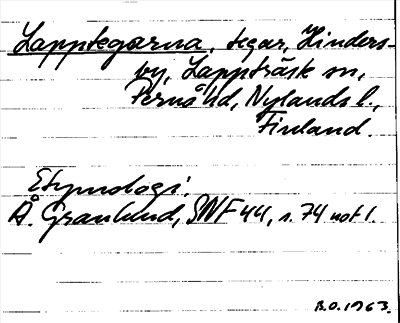 Lapptegarna, tegar, Hinders-
by, Lappträsk sn,
Pernå hd, Nylands l.,
Finland.
Etymologi.
Å. Granlund, SNF 44, s. 74 not 1.
B.O. 1963.